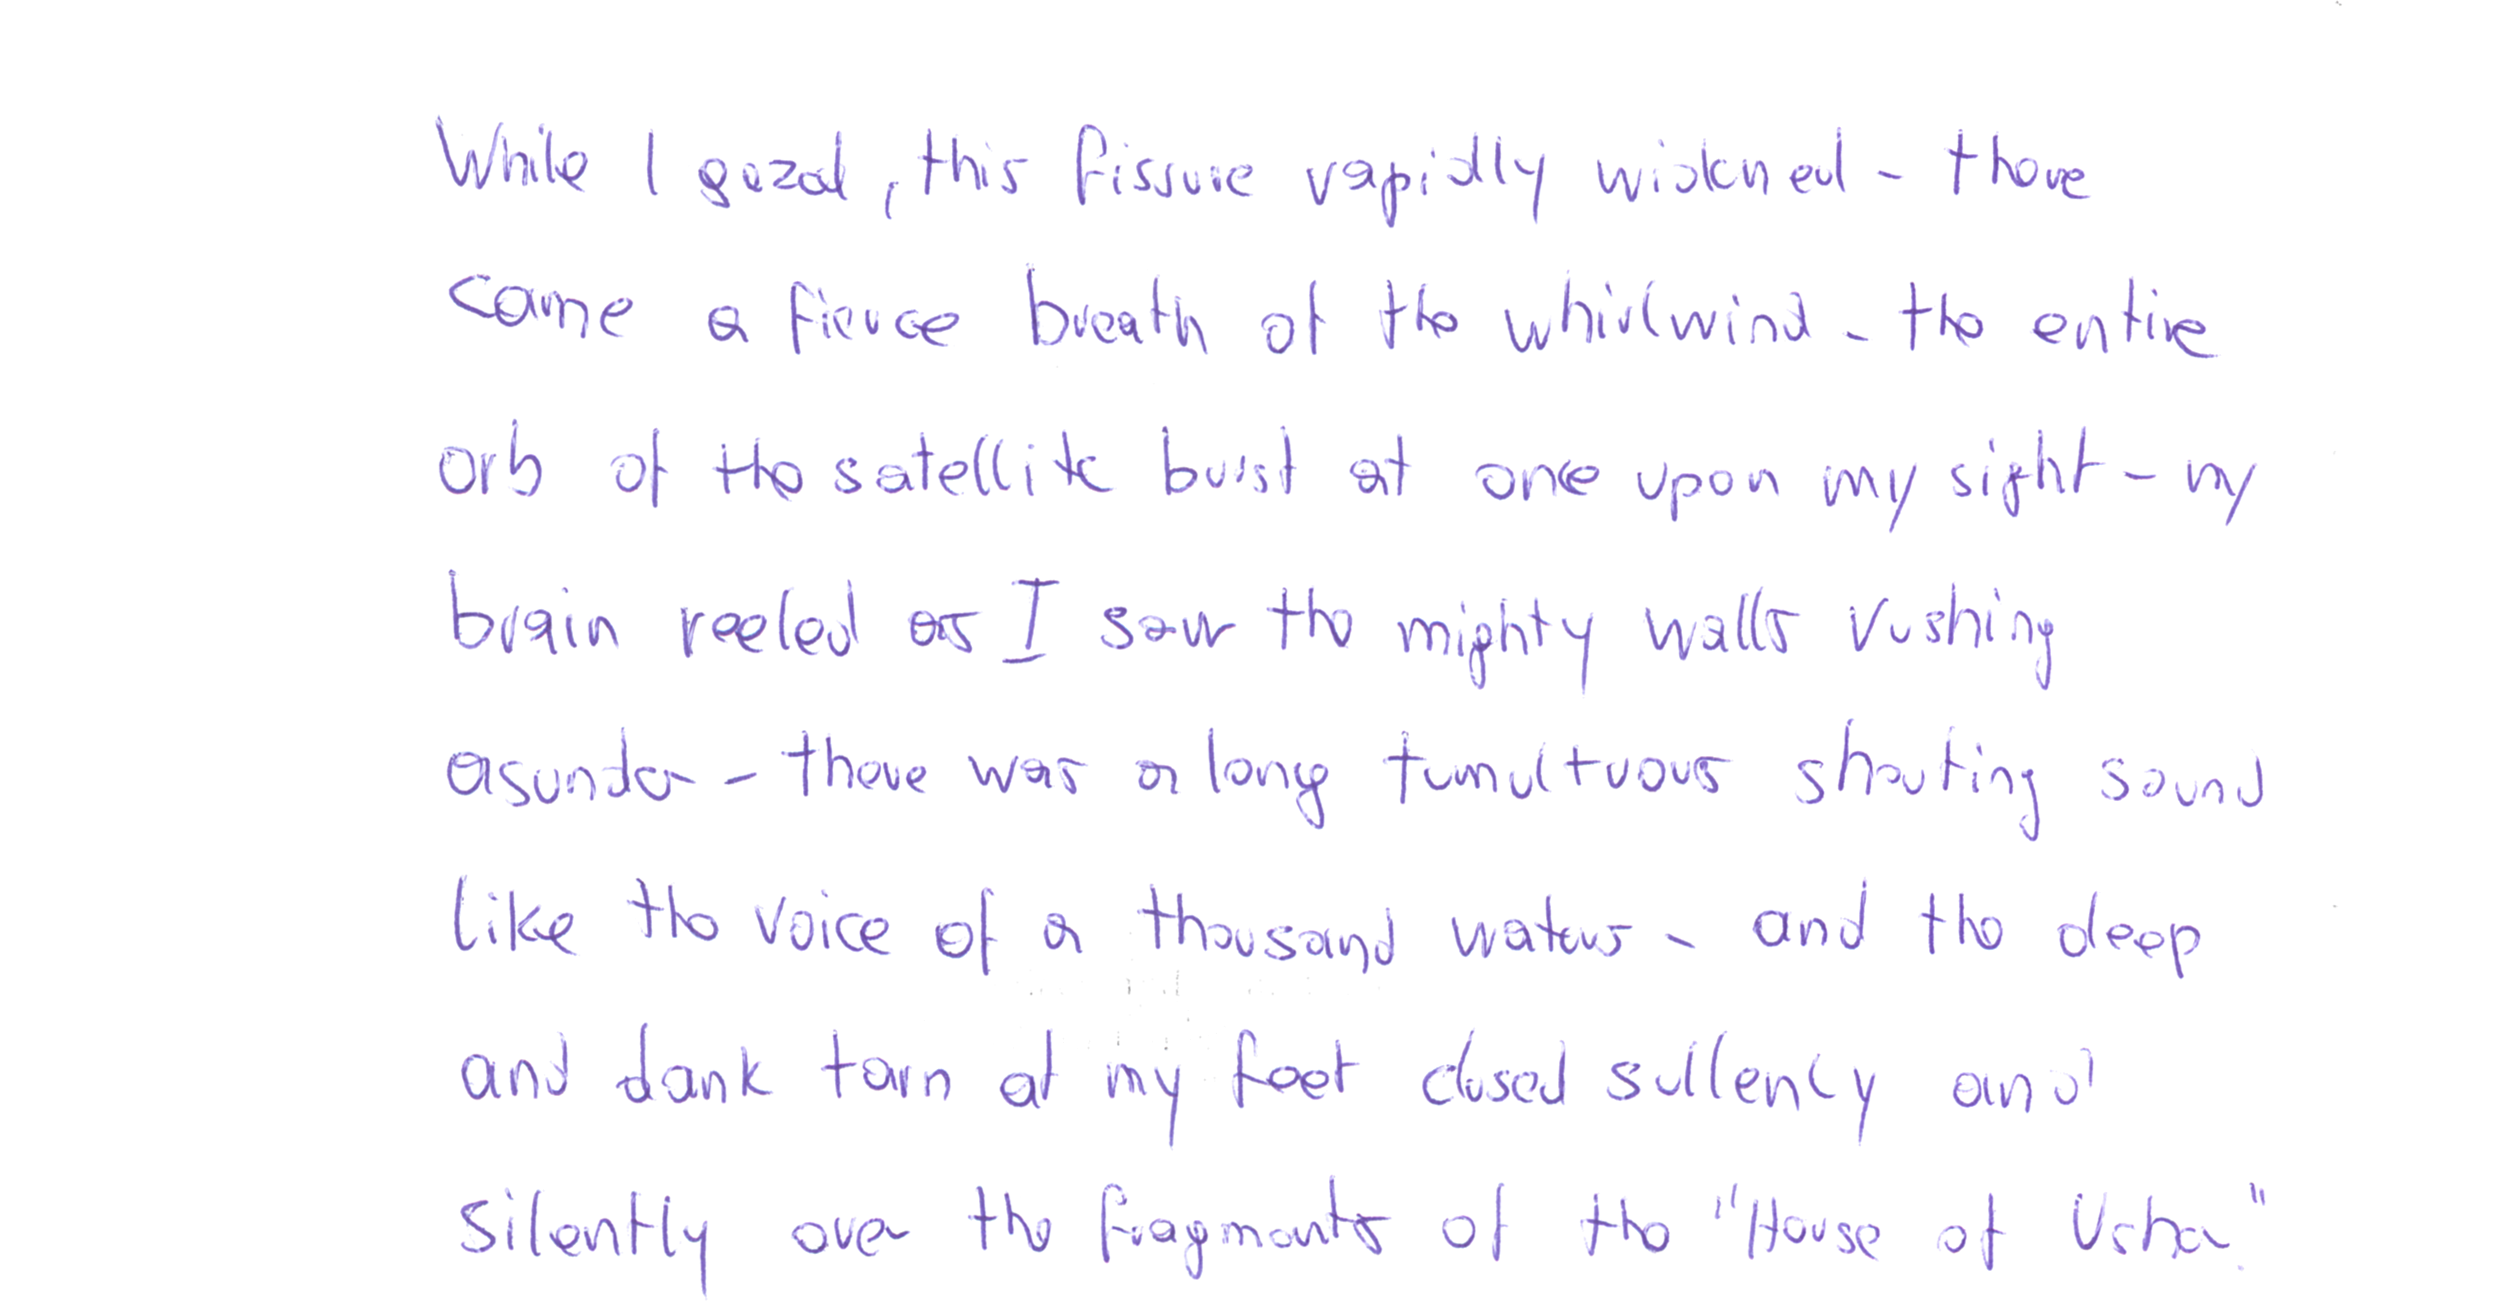 While I gazed, this fissure rapidly widened - there
came a fierce breath of the whirlwind - the entire
orb of the satellite burst at once upon my sight - my
brain reeled as I saw the mighty walls rushing
asunder - there was a long tumultuous shouting sound
like the voice of a thousand waters - and the deep
and dank tarn at my feet closed sullenly and
silently over the fragments of the "House of Usher."